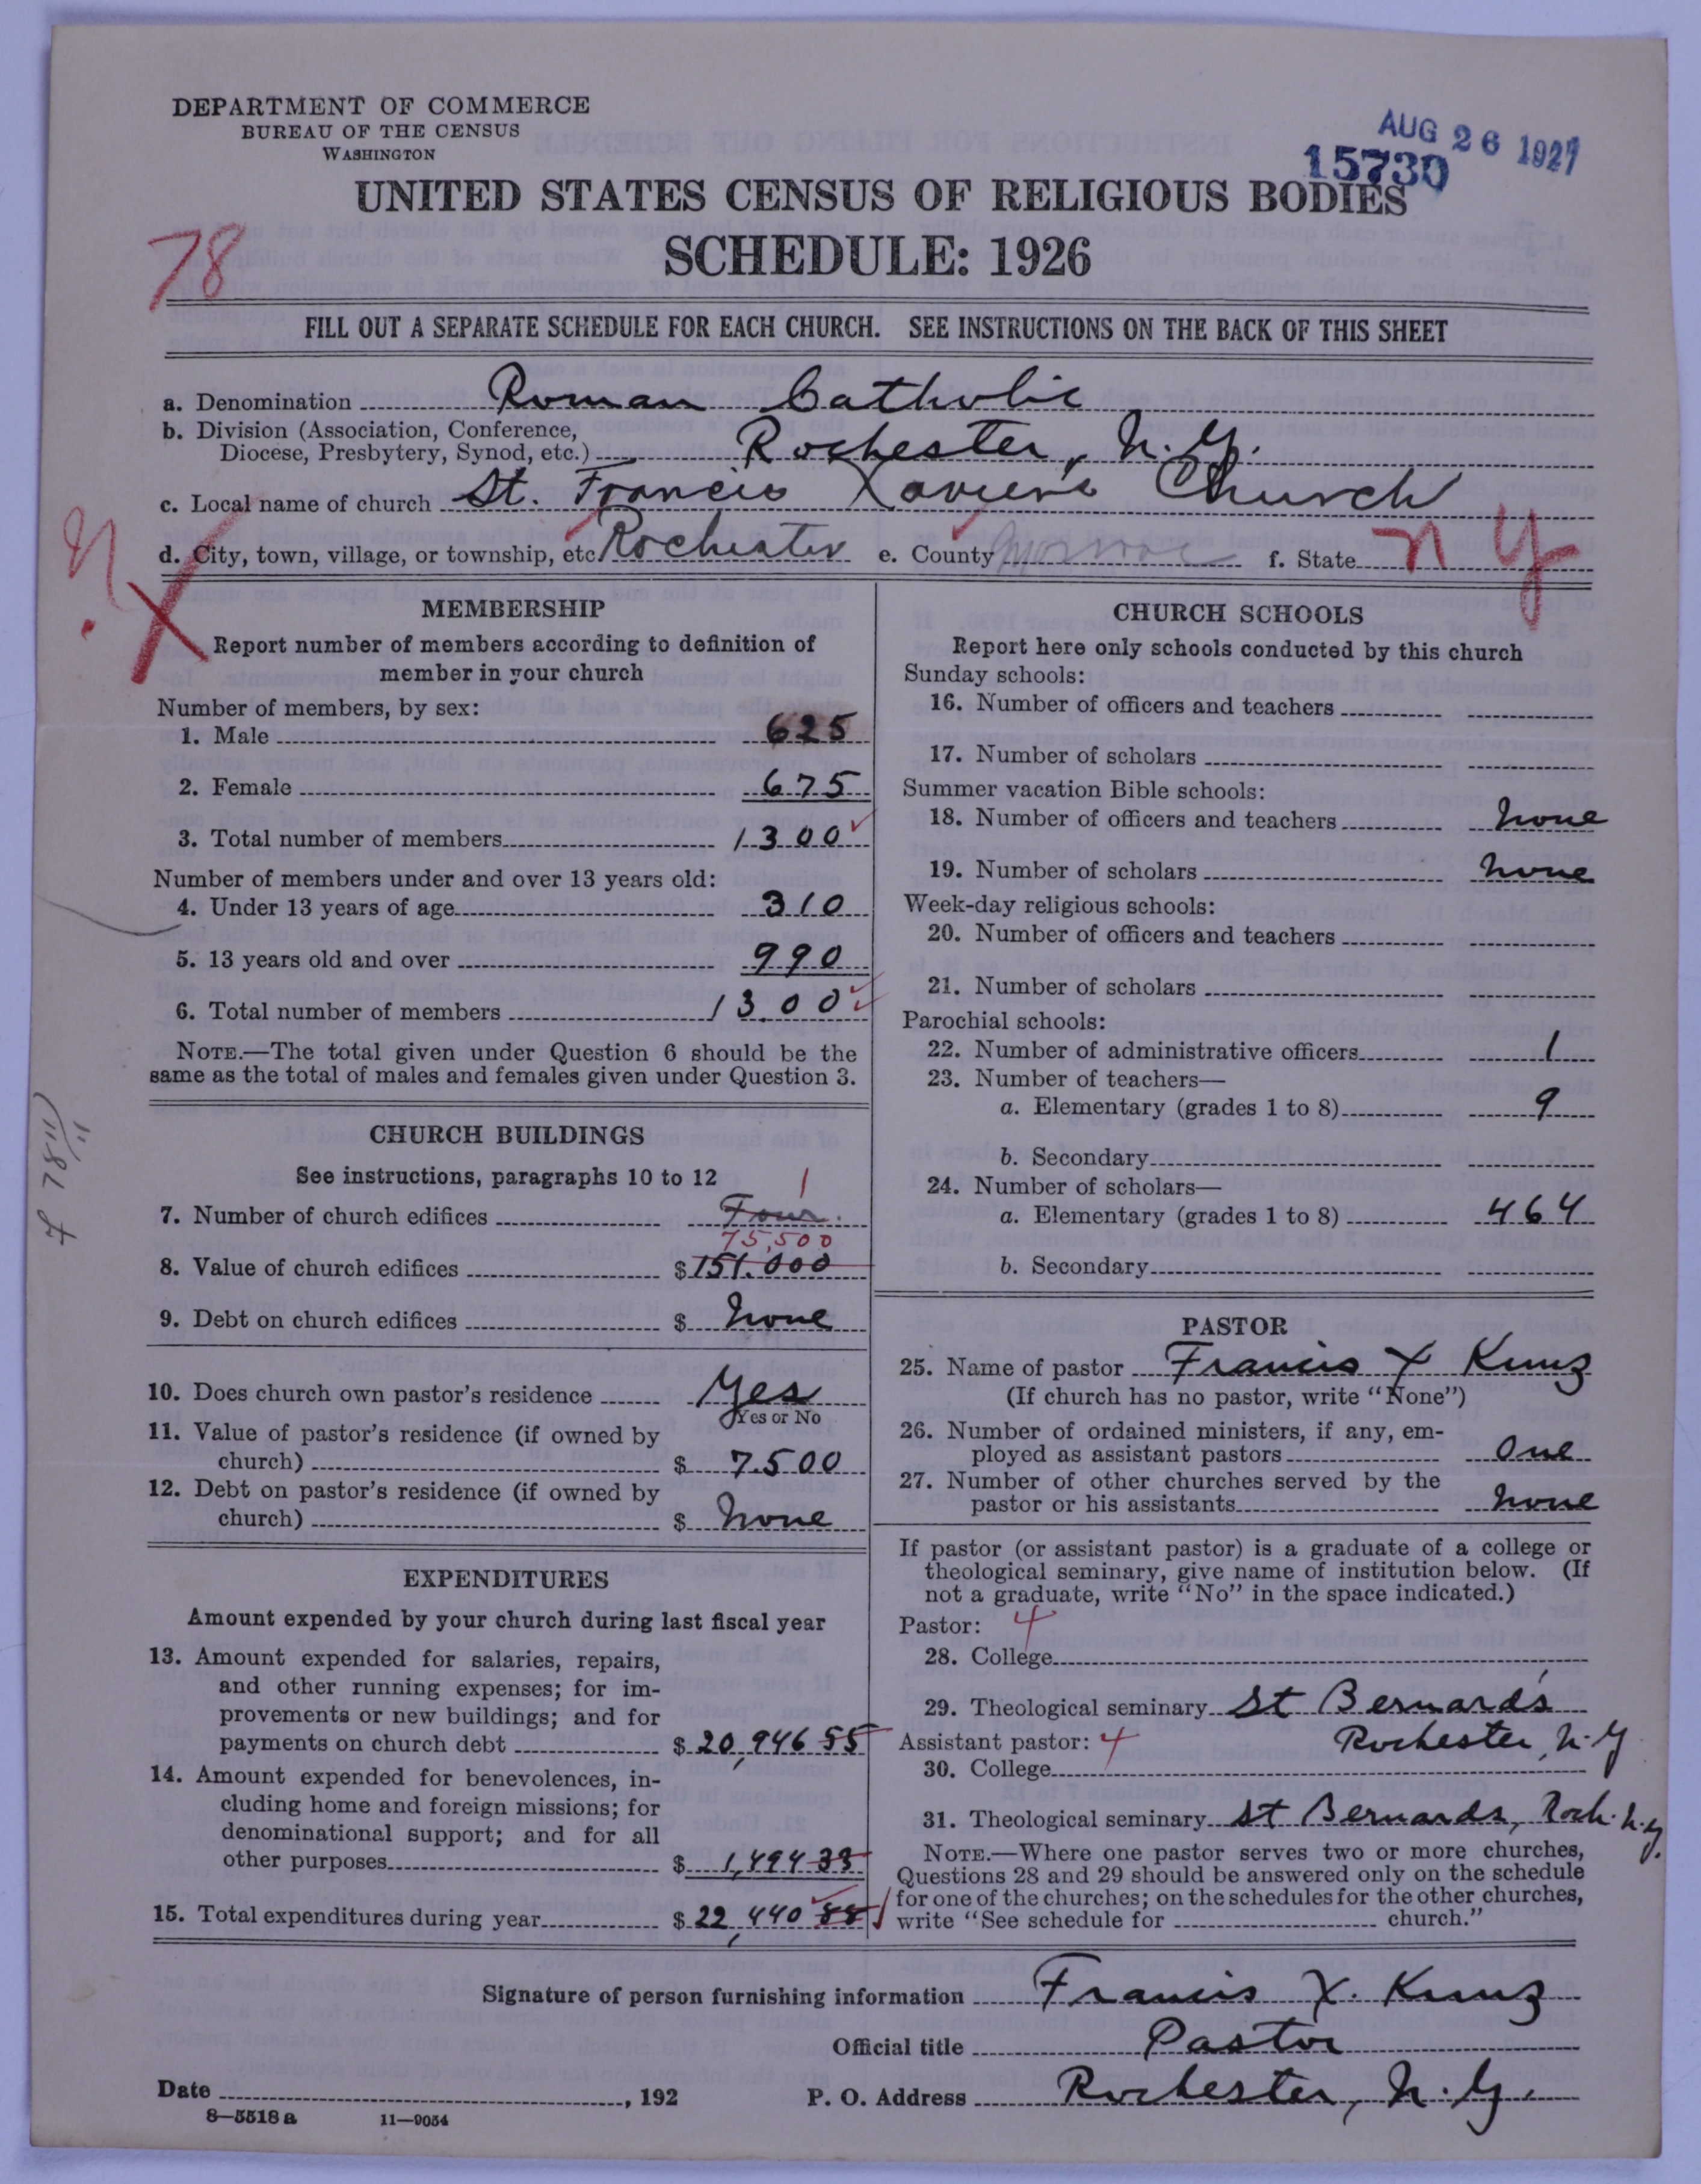 DEPARTMENT OF COMMERCE
BUREAU OF THE CENSUS
WASHINGTON
AUG 26 1927
15730
UNITED STATES CENSUS OF RELIGIOUS BODIES
SCHEDULE: 1926
78
FILL OUT A SEPARATE SCHEDULE FOR EACH CHURCH. SEE INSTRUCTIONS ON THE BACK OF THIS SHEET
a. Denomination Roman Catholic
b. Division (Association, Conference,
Diocese, Presbytery, Synod, etc.) Rochester, N.Y.
c. Local name of church St. Francis Xavier's Church
d. City, town, village, or township, etc. Rochester e. County Monroe f. State N Y
MEMBERSHIP
Report number of members according to definition of
member in your church
Number of members, by sex:
1. Male 625
2. Female 675
3. Total number of members 1300
Number of members under and over 13 years old:
4. Under 13 years of age 310
5. 13 years old and over 990
6. Total number of members 1300
NOTE.—The total given under Question 6 should be the
same as the total of males and females given under Question 3.
CHURCH BUILDINGS
See instructions, paragraphs 10 to 12
1
7. Number of church edifices Four.
75,500
8. Value of church edifices $151.000
9. Debt on church edifices $ None
10. Does church own pastor's residence Yes
Yes or No
11. Value of pastor's residence (if owned by
church) $ 7.500
12. Debt on pastor's residence (if owned by
church) $ None
EXPENDITURES
Amount expended by your church during last fiscal year
13. Amount expended for salaries, repairs,
and other running expenses; for im-
provements or new buildings; and for
payments on church debt $ 20,946 55
14. Amount expended for benevolences, in-
cluding home and foreign missions; for
denominational support; and for all
other purposes $ 1,494 33
15. Total expenditures during year $ 22,440 88
CHURCH SCHOOLS
Report here only schools conducted by this church
Sunday schools:
16. Number of officers and teachers
17. Number of scholars
Summer vacation Bible schools:
18. Number of officers and teachers None
19. Number of scholars None
Week-day religious schools:
20. Number of officers and teachers
21. Number of scholars
Parochial schools:
22. Number of administrative officers 1
23. Number of teachers—
a. Elementary (grades 1 to 8) 9
b. Secondary
24. Number of scholars—
a. Elementary (grades 1 to 8) 464
b. Secondary
PASTOR
25. Name of pastor Francis X Kunz
(If church has no pastor, write "None")
26. Number of ordained ministers, if any, em-
ployed as assistant pastors One
27. Number of other churches served by the
pastor or his assistants None
If pastor (or assistant pastor) is a graduate of a college or
theological seminary, give name of institution below. (If
not a graduate, write "No" in the space indicated.)
Pastor: 4
28. College
29. Theological seminary St Bernard's
Rochester, N.Y
Assistant pastor: 4
30. College
31. Theological seminary St Bernards, Roch. N.Y.
NOTE.—Where one pastor serves two or more churches,
Questions 28 and 29 should be answered only on the schedule
for one of the churches; on the schedules for the other churches,
write "See schedule for church."
Signature of person furnishing information Francis X. Kunz
Official title Pastor
Date , 192 P. O. Address Rochester, N.Y.
8—5518a 11—9054